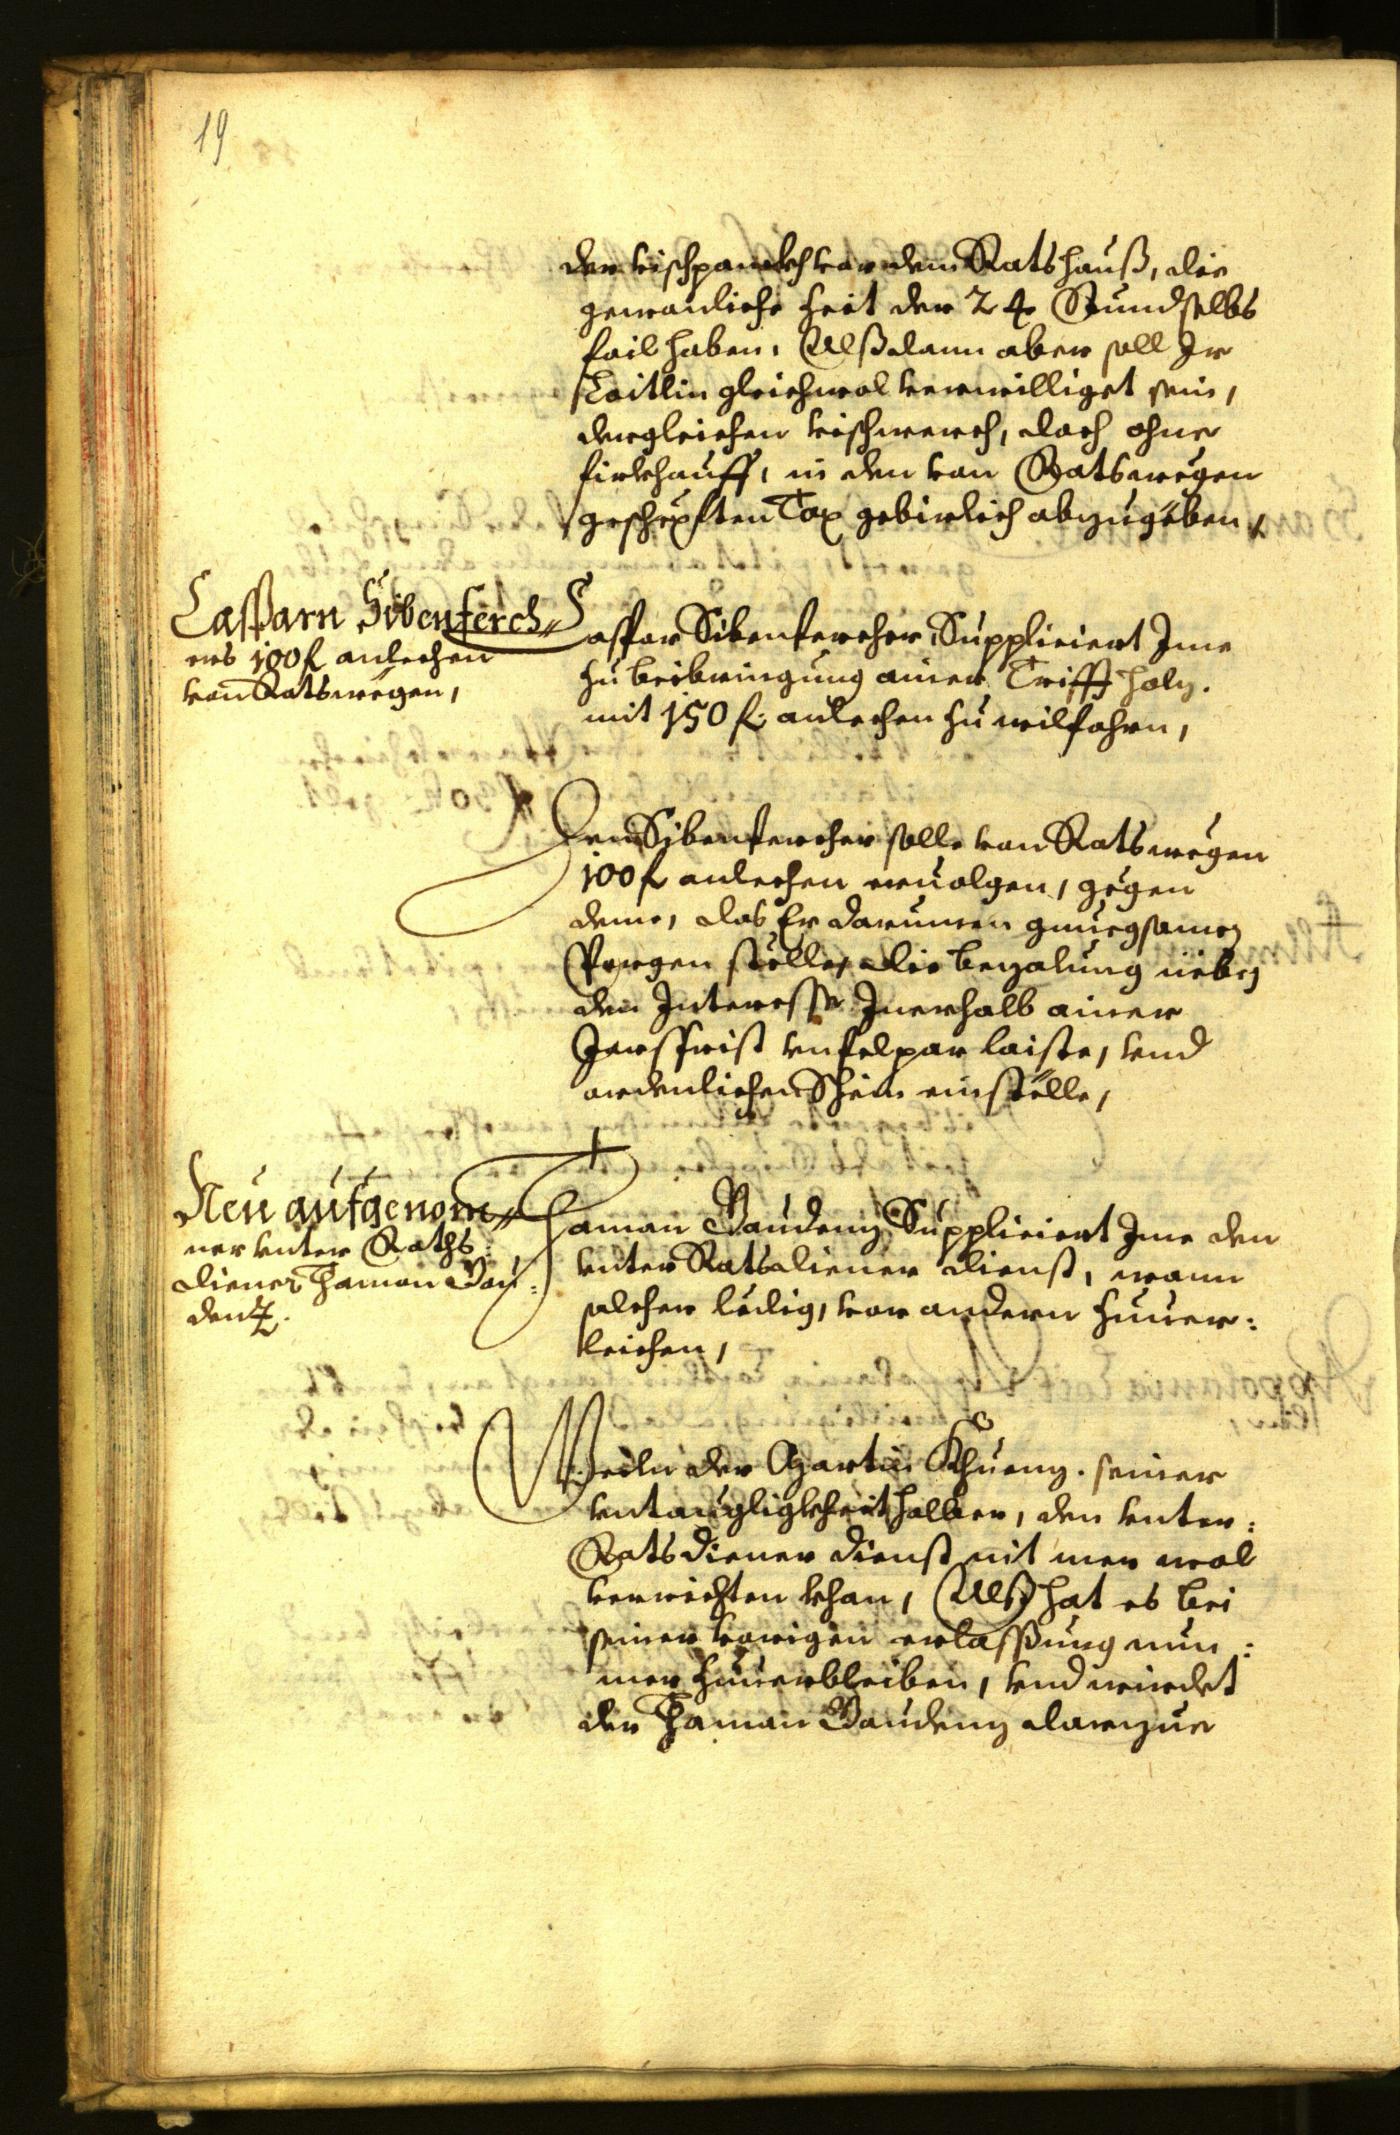 19
der vischpanckh vor dem Ratshauß, die
gewonliche Zeit der 24 Stund selbs
fail haben, Alßdann aber soll Ir
Zoitlin gleichwol verwilliget sein,
dergleichen vischwerch, doch ohne
firkhauff, in den von Ratswegen
geschepften Tax gebirlich abzugeben,
Casparn Sibenferch„
ers 100 f. anlechen
von Ratswegen,
Caspar Sibenfercher Suppliciert Ime
zu beibringung ainer Trifft holz.
mit 150 f. anlechen zu wilfahrn,
Dem Sibenfercher solle von Ratswegen
100 f. anlechen ervolgen, gegen
deme, das Er darumen gnuegsamen
Porgen stelle, die bezalung neben
den Interesse Inerhalb ainer
Jarsfrist unfelpar laiste, vnd
ordenlichen Schein einstelle,
Neu aufgenom„
ner vnter Raths
diener Thoman Vau:
dentz.
Thoman Vaudenz Suppliciert Ime den
vnter Ratsdiener dienst, wann
solcher ledig, vor andern zuuer:
leichen,
Weiln der Martin Khuenz. seiner
vntaugligkheit halber, den vnter:
Ratsdiener dienst nit mer wol
verrichten khan, Alß hat es bei
seiner vorigen erlassung nun:
mer zuuerbleiben, vnd wirdet
der Thoman Vaudenz darzue